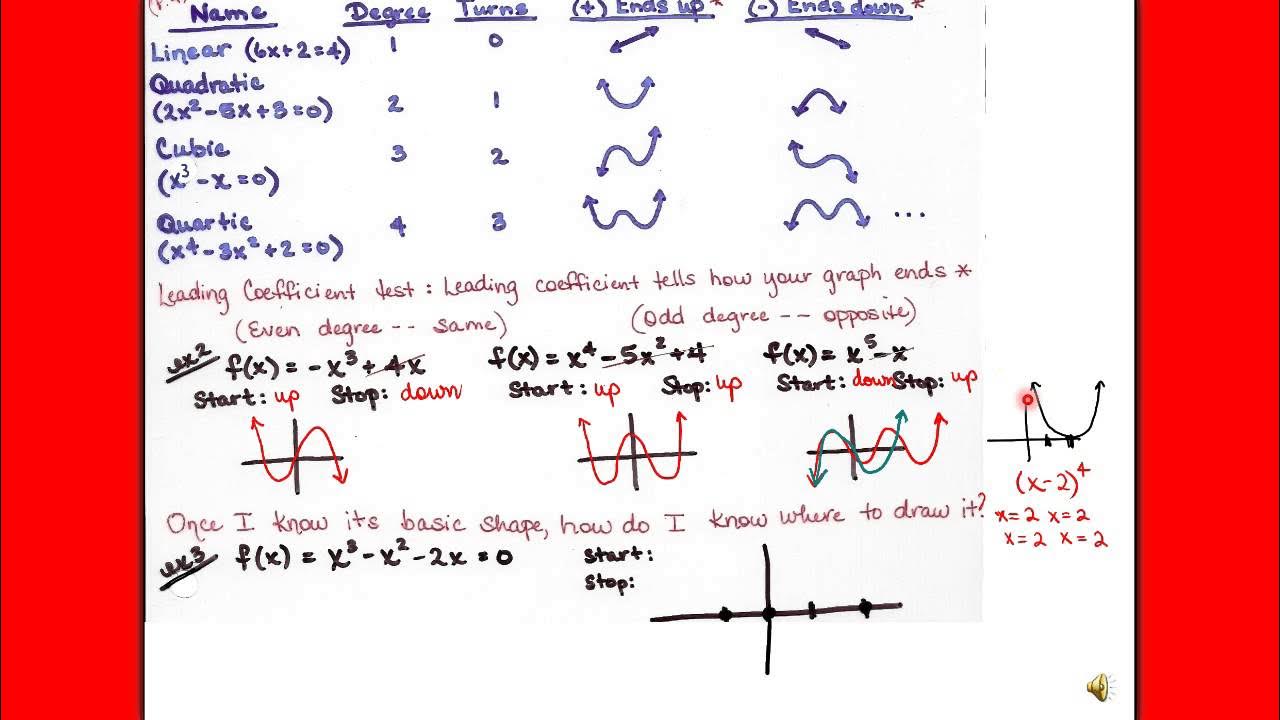 Name Degree Turns (+) Ends up * (-) Ends down *
Linear (6x+2=4) 1 0
Quadratic
(2x²-5x+3=0) 2 1
Cubic 3 2
(x³-x=0)
Quartic 4 3 ...
(x⁴-3x²+2=0)
Leading Coefficient test: Leading coefficient tells how your graph ends *
(Even degree -- same) (Odd degree -- opposite)
ex2 f(x) = -x³ + 4x f(x) = x⁴ - 5x² + 4 f(x) = x⁵ - x
Start: up Stop: down Start: up Stop: up Start: down Stop: up
(x-2)⁴
Once I know its basic shape, how do I know where to draw it?
x=2 x=2
x=2 x=2
ex3 f(x) = x³ - x² - 2x = 0 Start:
Stop: